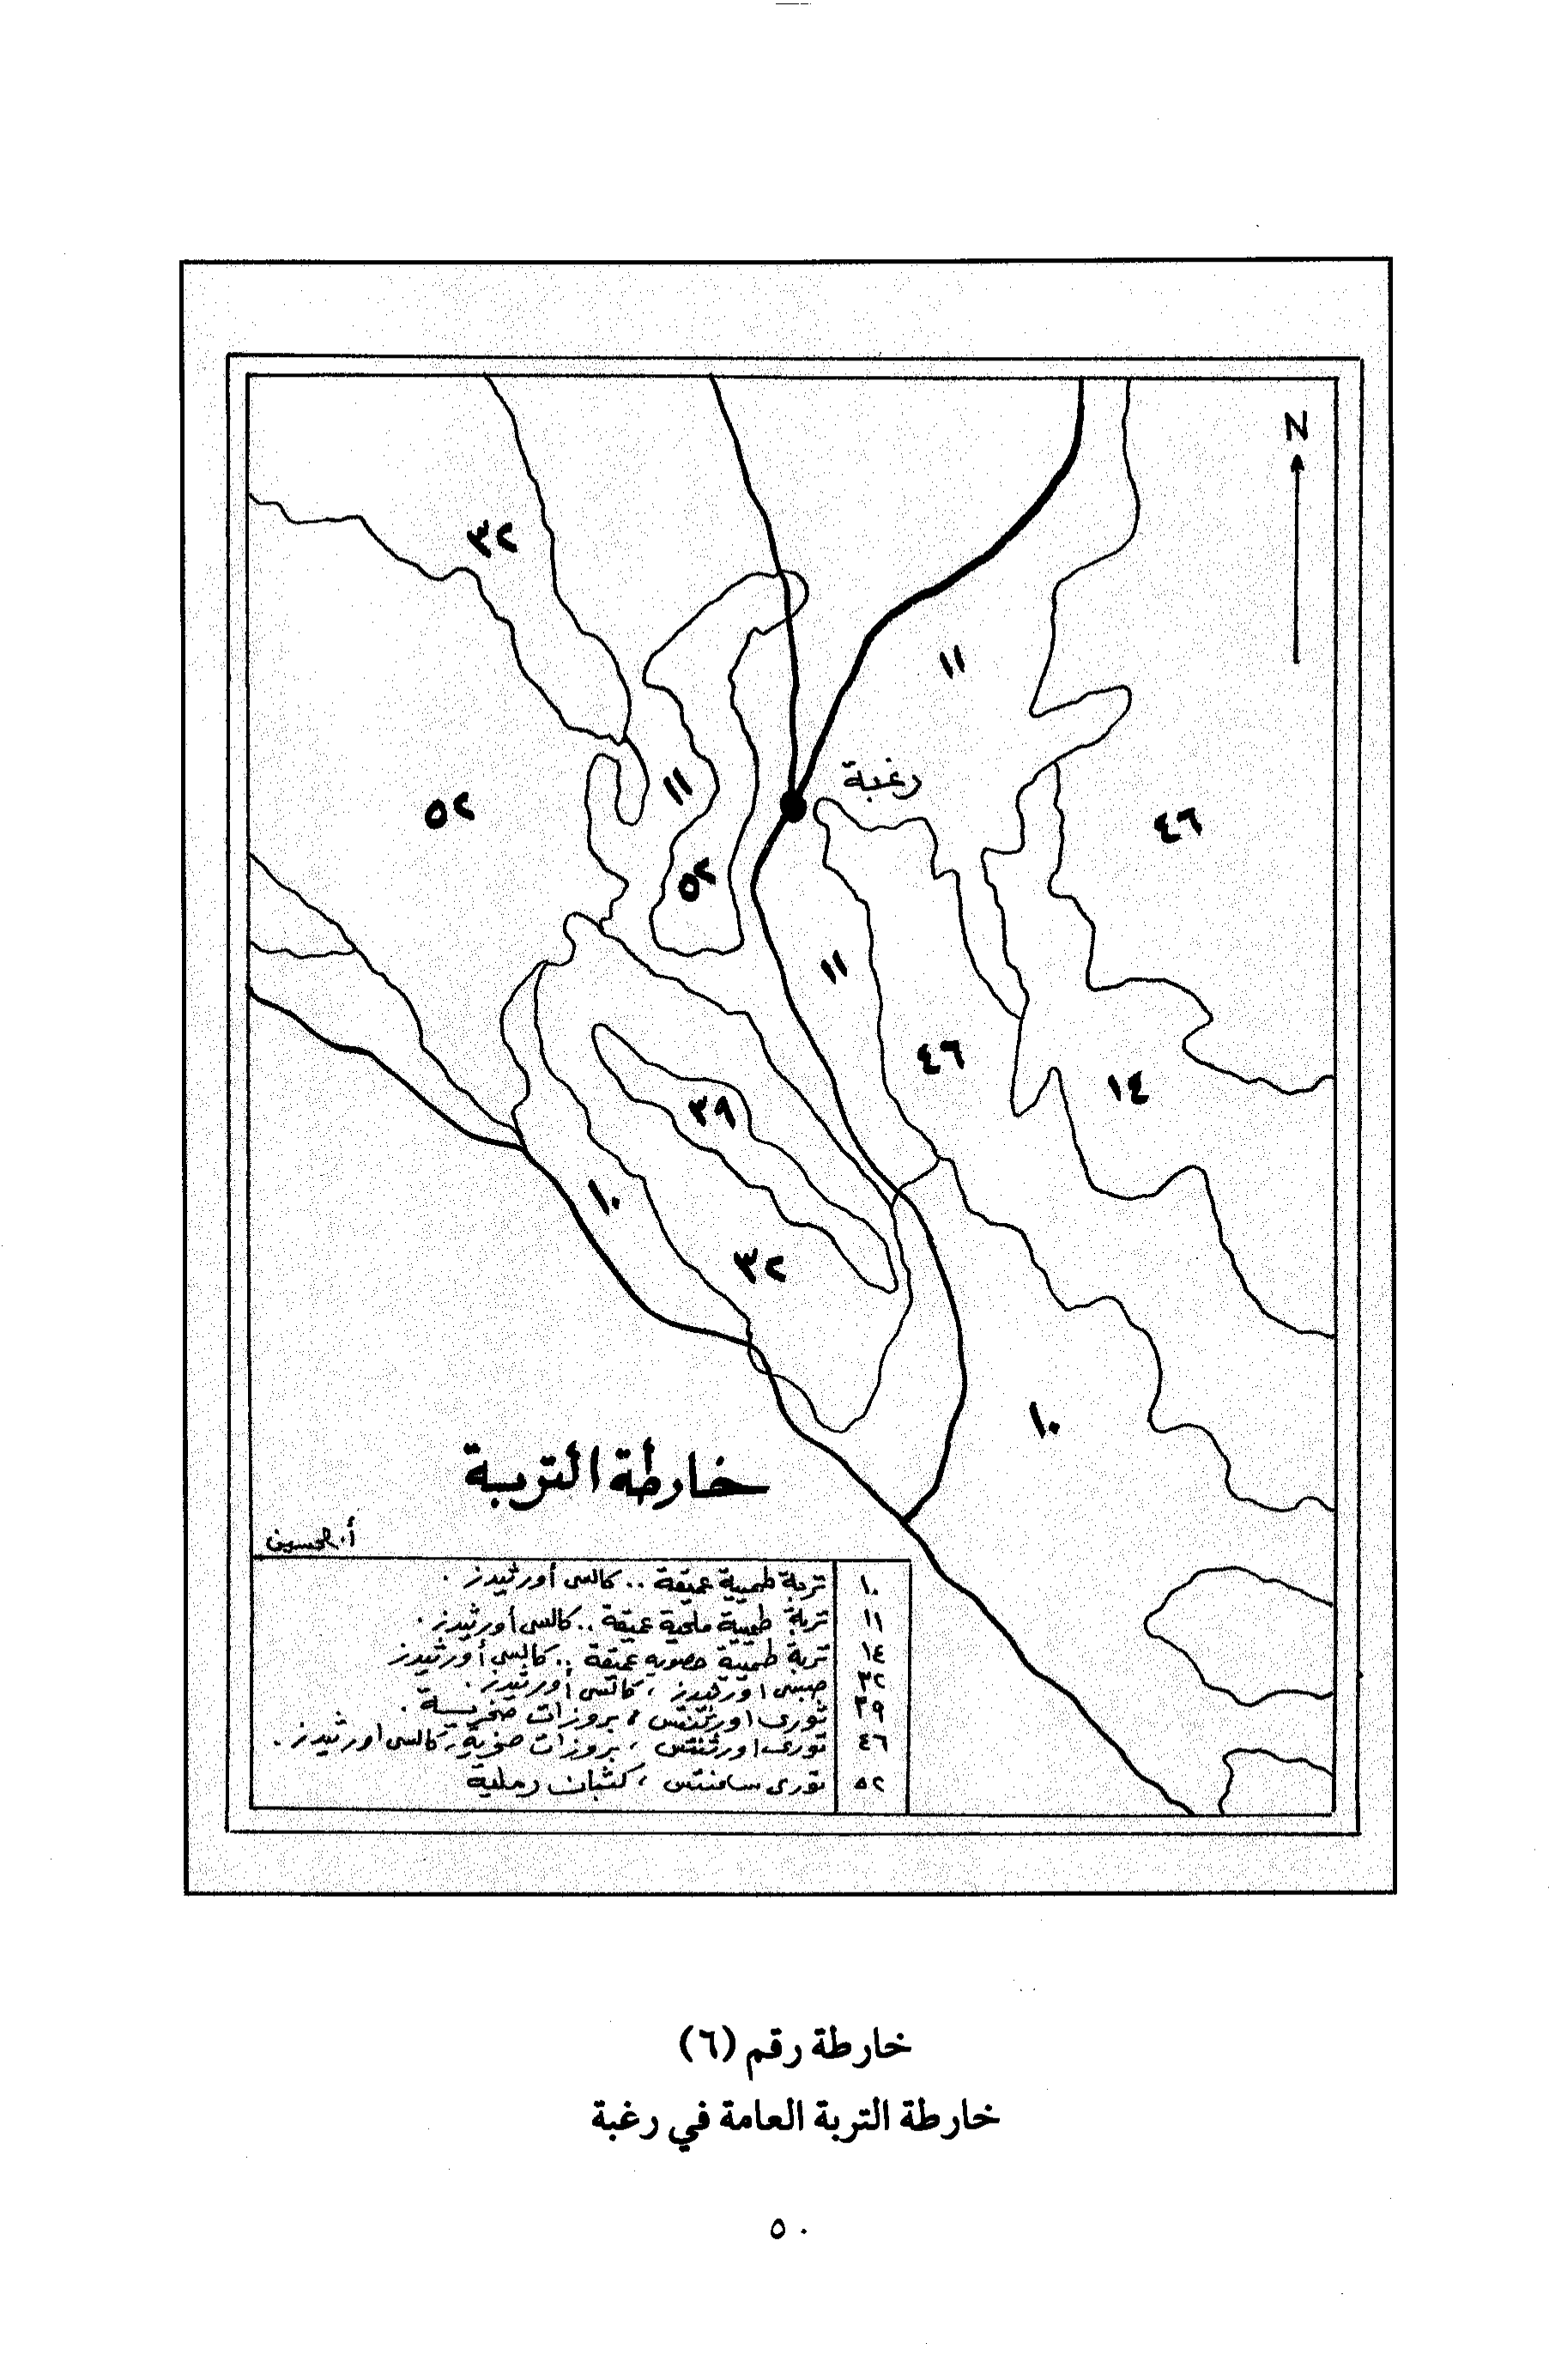 N
٣٢
١١
رغبة
٥٢
١١
٤٦
٥٢
١١
٤٦
١٤
٣٩
١٠
٣٢
١٠
خارطة التربة
أ. الحسين
١٠ تربة طميية عميقة .. كالسى أورثيدز .
١١ تربة طميية ملحية عميقة .. كالسى أورثيدز .
١٤ تربة طميية حصوية عميقة .. كالسى أورثيدز
٣٢ جبسى اورثيدز ، كالسى أورثيدز .
٣٩ تورى اورثنتس ، بروزات صخرية .
٤٦ تورى اورثنتس ، بروزات صخرية ، كالسى اورثيدز .
٥٢ تورى سامنتس ، كثبان رملية
خارطة رقم (٦)
خارطة التربة العامة في رغبة
٥٠